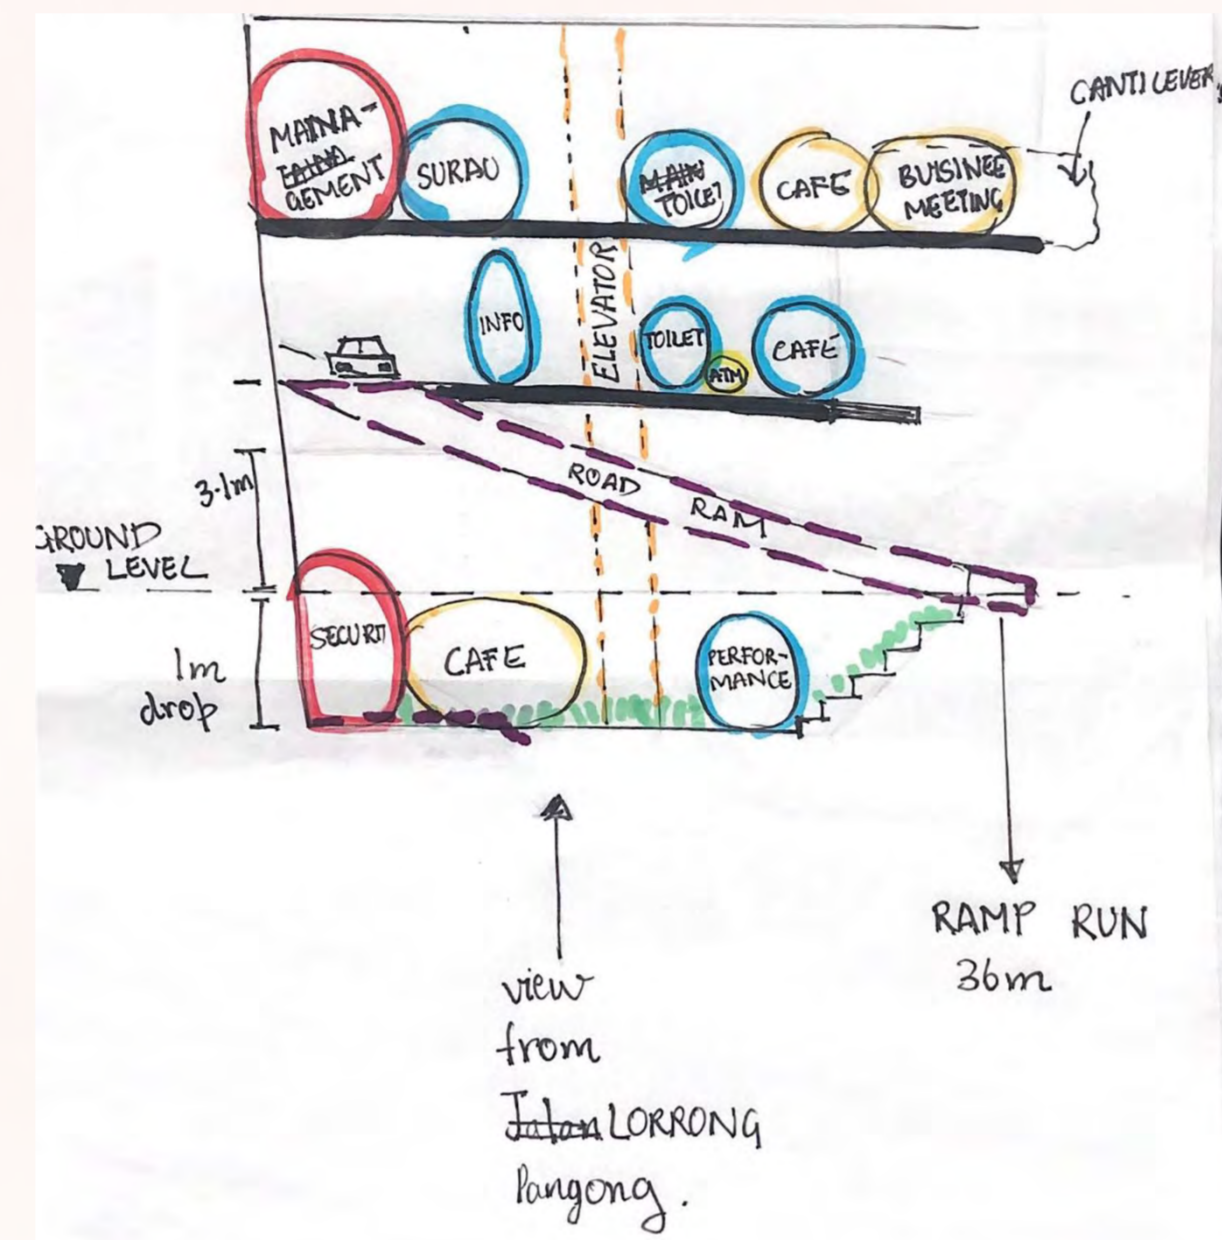 CANTILEVER
MANA-
GEMENT
SURAU
TOILET
CAFE
BUISINEE
MEETING
INFO
ELEVATOR
TOILET
ATM
CAFE
3.1m
ROAD
RAM
GROUND
LEVEL
SECURTI
CAFE
PERFOR-
MANCE
1m
drop
RAMP RUN
36m
view
from
Jalan LORRONG
Pangong.